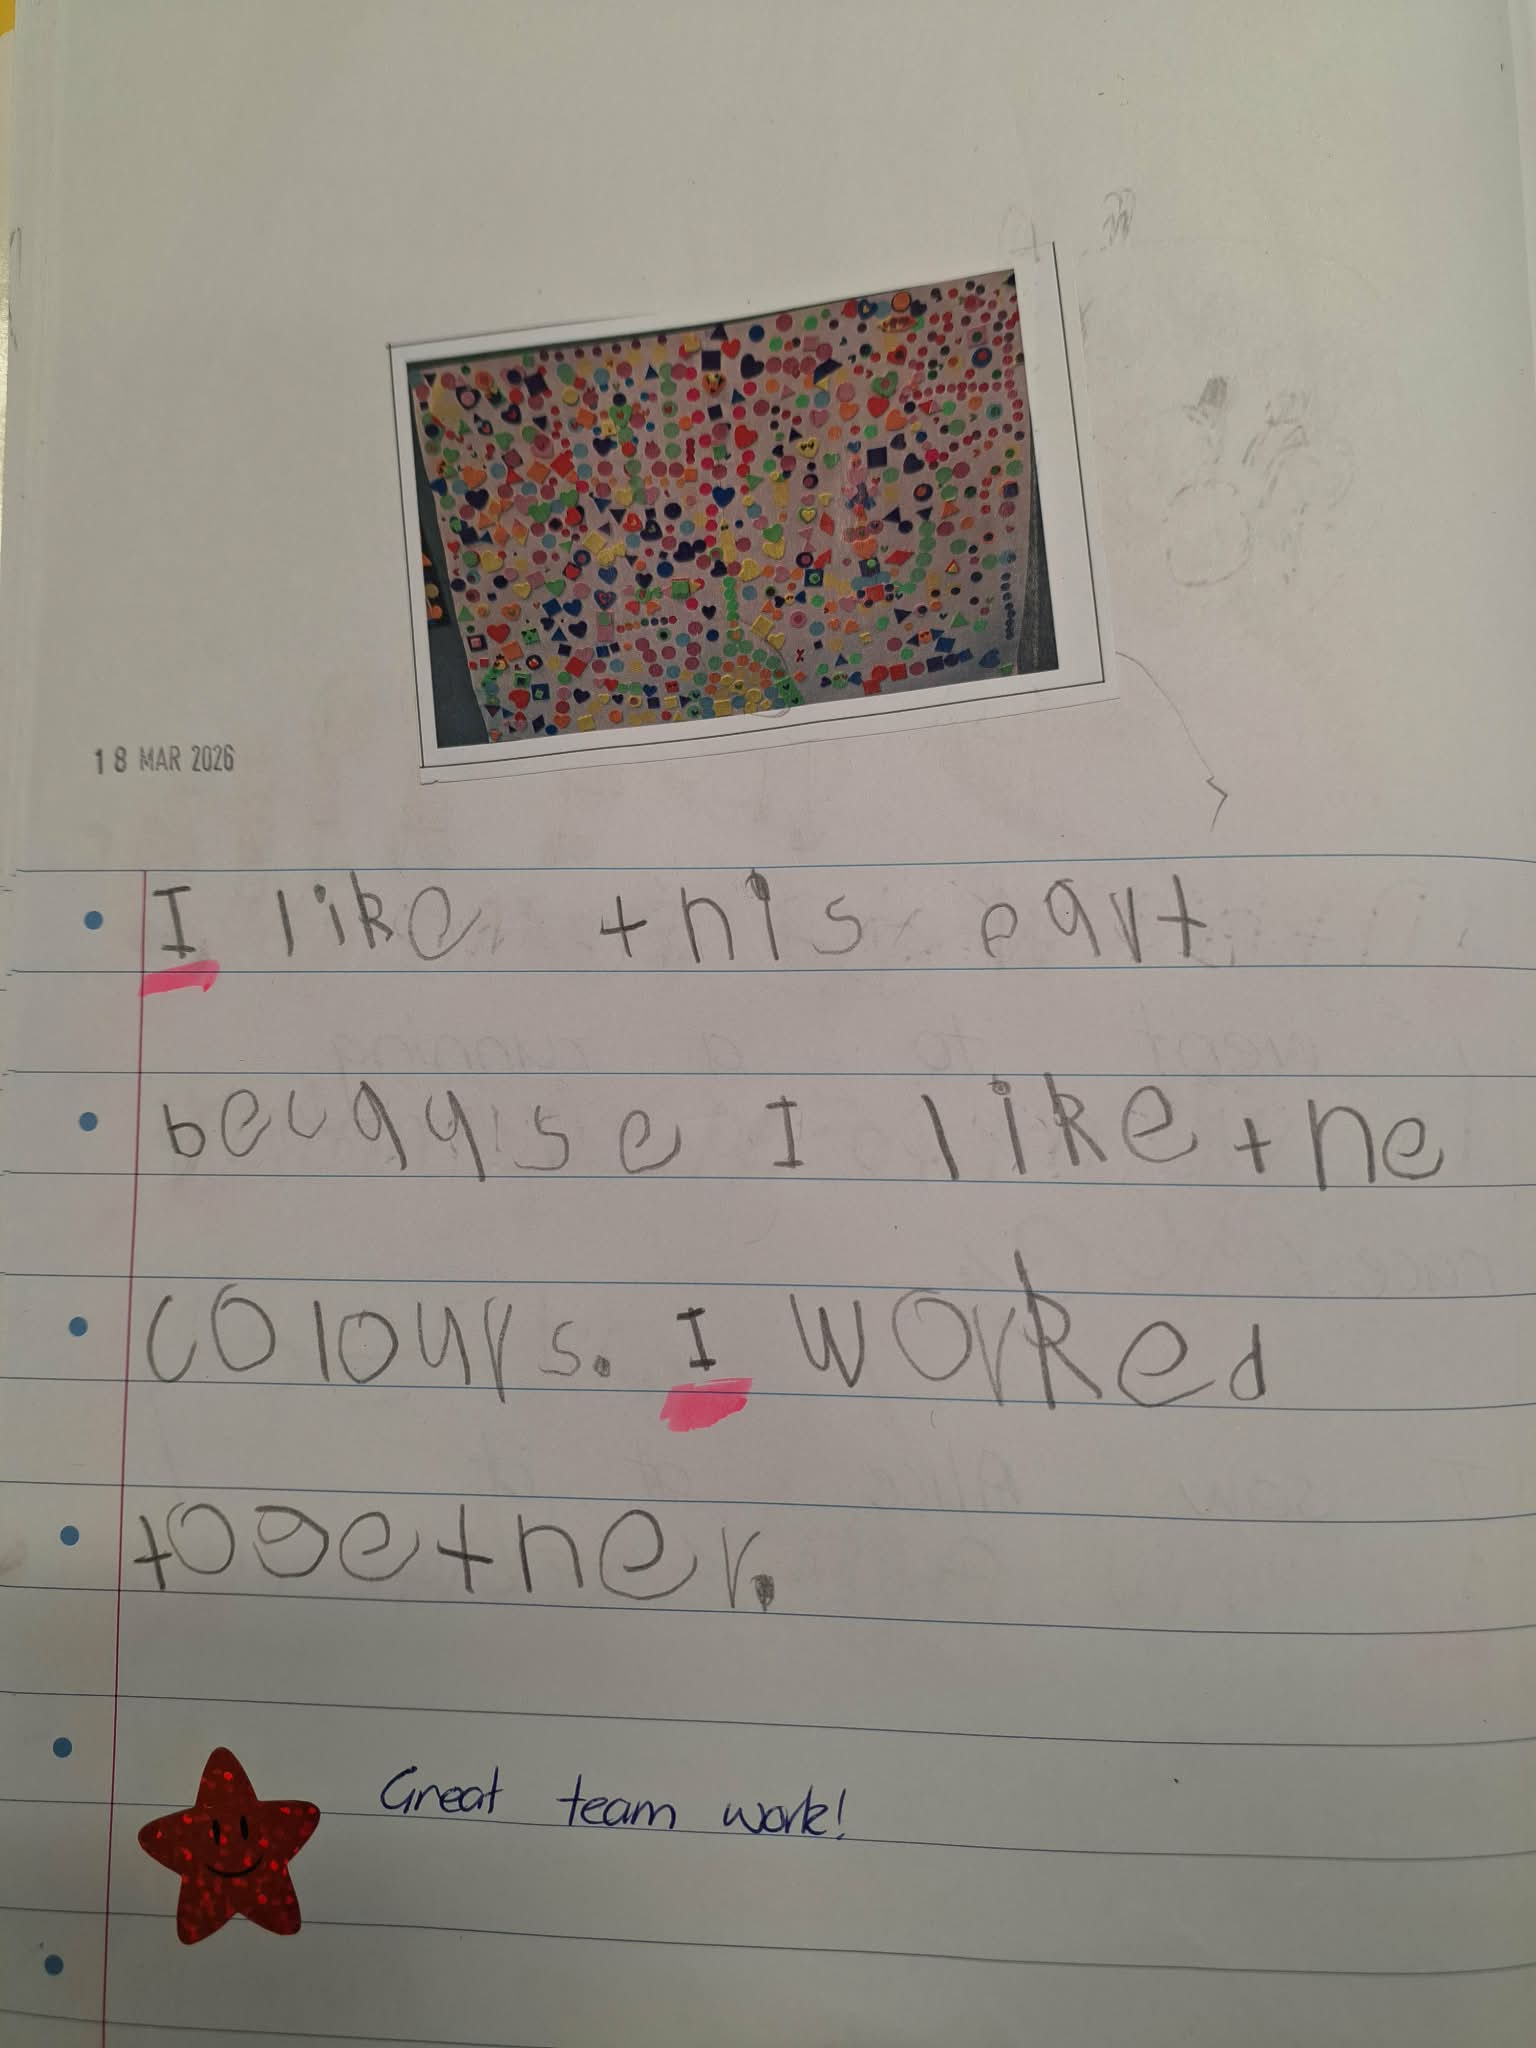 18 MAR 2026
I like this eart
because I like the
colours. I worked
together.
Great team work!